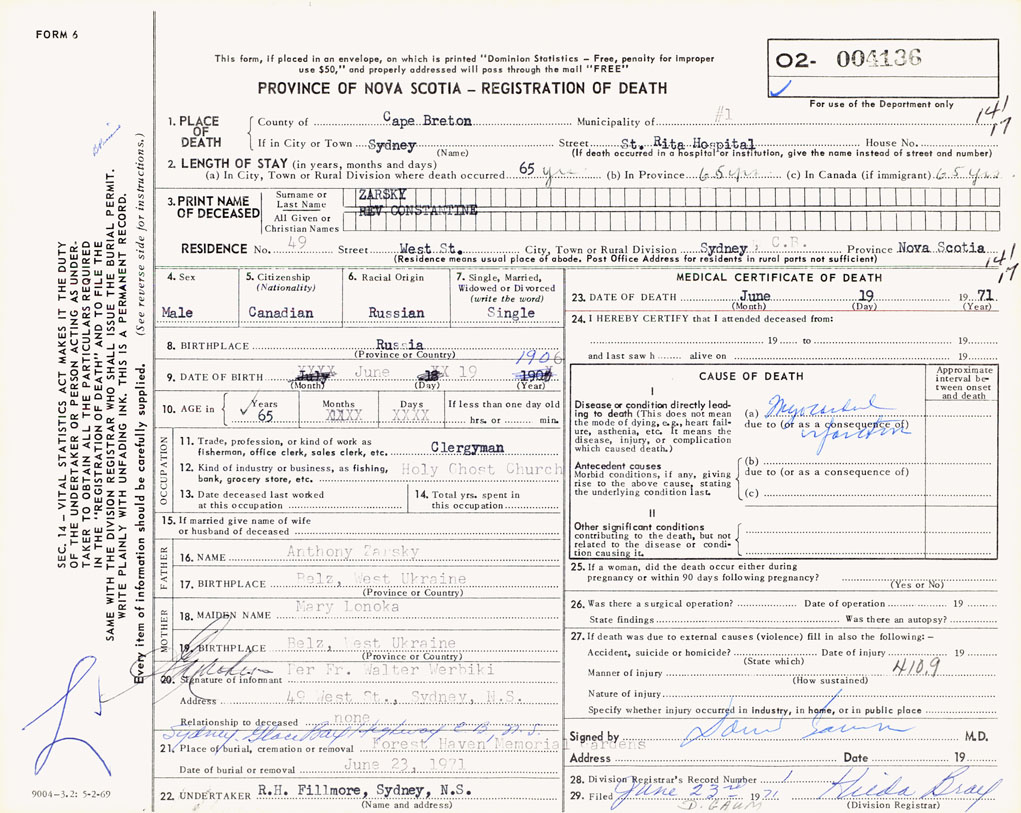 FORM 6
This form, if placed in an envelope, on which is printed "Dominion Statistics – Free, penalty for improper
use $50," and properly addressed will pass through the mail "FREE"
PROVINCE OF NOVA SCOTIA – REGISTRATION OF DEATH
02- 004136
For use of the Department only
141
17
1. PLACE OF DEATH
County of Cape Breton Municipality of #1
If in City or Town Sydney Street St. Rita Hospital House No.
(Name) (If death occurred in a hospital or institution, give the name instead of street and number)
2. LENGTH OF STAY (in years, months and days)
(a) In City, Town or Rural Division where death occurred 65 yrs (b) In Province 65 yrs (c) In Canada (if immigrant) 65 yrs
3. PRINT NAME OF DECEASED
Surname or Last Name ZARSKY
All Given or Christian Names REV CONSTANTINE
RESIDENCE No. 49 Street West St. City, Town or Rural Division Sydney, C.B. Province Nova Scotia
(Residence means usual place of abode. Post Office Address for residents in rural parts not sufficient)
141
17
4. Sex
Male
5. Citizenship
(Nationality)
Canadian
6. Racial Origin
Russian
7. Single, Married,
Widowed or Divorced
(write the word)
Single
8. BIRTHPLACE Russia
(Province or Country)
1906
9. DATE OF BIRTH XXXX June XX 19
(Month) (Day) (Year)
10. AGE in
Years Months Days If less than one day old
65 XXXX XXXX hrs. or min.
OCCUPATION
11. Trade, profession, or kind of work as
fisherman, office clerk, sales clerk, etc. Clergyman
12. Kind of industry or business, as fishing,
bank, grocery store, etc. Holy Ghost Church
13. Date deceased last worked
at this occupation
14. Total yrs. spent in
this occupation
15. If married give name of wife
or husband of deceased
FATHER
16. NAME Anthony Zarsky
17. BIRTHPLACE Belz, West Ukraine
(Province or Country)
MOTHER
18. MAIDEN NAME Mary Lonoka
19. BIRTHPLACE Belz, West Ukraine
(Province or Country)
20. Signature of informant Per Fr. Walter Werbiki
Address 49 West St., Sydney, N.S.
Relationship to deceased none
Sydney Glace Bay Highway C.B., N.S.
21. Place of burial, cremation or removal Forest Haven Memorial Gardens
Date of burial or removal June 23, 1971
22. UNDERTAKER R.H. Fillmore, Sydney, N.S.
(Name and address)
MEDICAL CERTIFICATE OF DEATH
23. DATE OF DEATH June 19 1971
(Month) (Day) (Year)
24. I HEREBY CERTIFY that I attended deceased from:
19 to 19
and last saw h alive on 19
CAUSE OF DEATH
Approximate
interval be-
tween onset
and death
I
Disease or condition directly lead-
ing to death (This does not mean
the mode of dying, e.g., heart fail-
ure, asthenia, etc. It means the
disease, injury, or complication
which caused death.)
(a) Myocardial
due to (or as a consequence of)
infarction
Antecedent causes
Morbid conditions, if any, giving
rise to the above cause, stating
the underlying condition last.
(b)
due to (or as a consequence of)
(c)
II
Other significant conditions
contributing to the death, but not
related to the disease or condi-
tion causing it.
25. If a woman, did the death occur either during
pregnancy or within 90 days following pregnancy?
(Yes or No)
26. Was there a surgical operation? Date of operation 19
State findings Was there an autopsy?
27. If death was due to external causes (violence) fill in also the following: –
Accident, suicide or homicide? Date of injury 19
(State which)
410.9
Manner of injury
(How sustained)
Nature of injury
Specify whether injury occurred in industry, in home, or in public place
Signed by M.D.
Address Date 19
28. Division Registrar's Record Number 1
29. Filed June 23rd 1971 Hilda Bray
D. GAUM (Division Registrar)
SEC. 14 – VITAL STATISTICS ACT MAKES IT THE DUTY
OF THE UNDERTAKER OR PERSON ACTING AS UNDER-
TAKER TO OBTAIN ALL THE PARTICULARS REQUIRED
IN THE "REGISTRATION OF DEATH" AND TO FILE THE
SAME WITH THE DIVISION REGISTRAR WHO SHALL ISSUE THE BURIAL PERMIT.
WRITE PLAINLY WITH UNFADING INK. THIS IS A PERMANENT RECORD.
Every item of information should be carefully supplied. (See reverse side for instructions.)
9004-3.2: 5-2-69